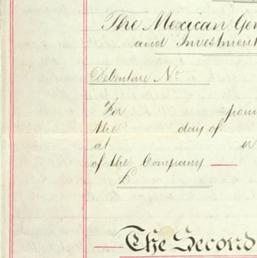 The Mexican Gen
and Investment
Debenture No
For poun
the day of
at or
of the Company
£
The Second